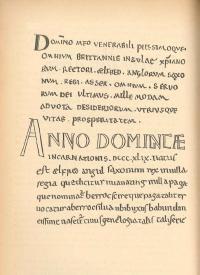 DOMINO MEO VENERABILI PIISSIMOQUE
OMNIUM BRITTANNIE INSULAE XPIANO
RUM. RECTORI. ÆLFRED. ANGLORUM SAXO
NUM. REGI. ASSER. OMNIUM. SERVO
RUM DEI ULTIMUS. MILLE MODAM
ADVOTA DESIDERIORUM. UTRIUSQUE
VITAE. PROSPERITATEM.
ANNO DOMINICÆ
INCARNATIONIS. DCCC.XL.IX. natus
est ælfred angul saxonum rex in villa
regia quæ dicitur uuanating in illa paga
quæ nominatur berrocscire quæ paga taliter
vocatur a berroc silva ubi buxus habundan